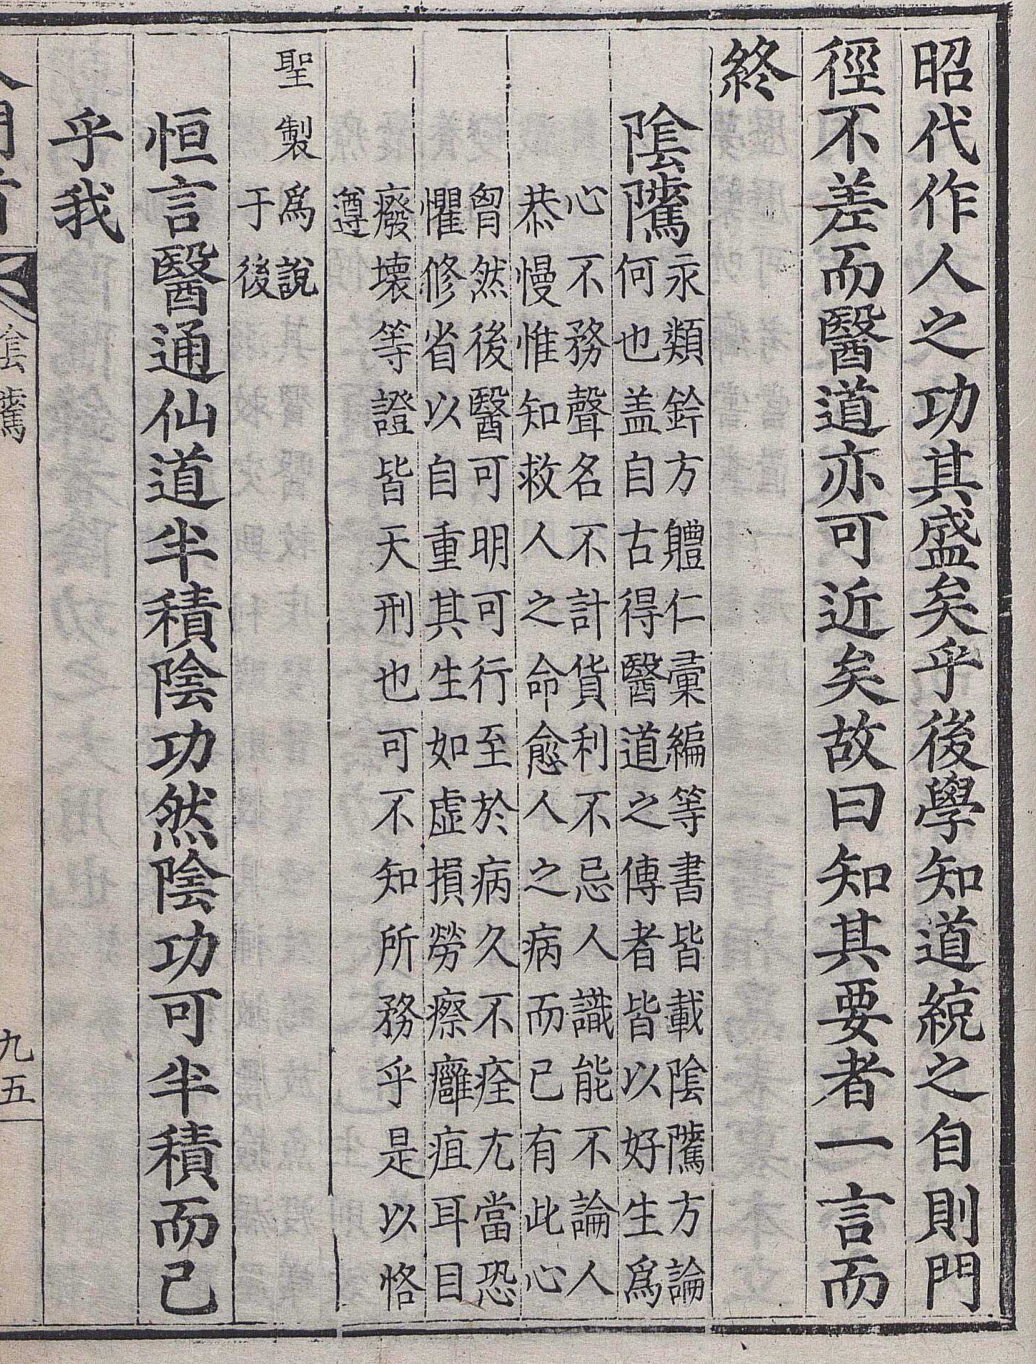 昭代作人之功其盛矣乎後學知道統之自則門
徑不差而醫道亦可近矣故曰知其要者一言而
終
隂隲
永類鈐方軆仁彚編等書皆載隂隲方論
何也盖自古得醫道之傳者皆以好生爲
心不務聲名不計貨利不忌人識能不論人
恭慢惟知救人之命愈人之病而已有此心
胷然後醫可明可行至於病久不痊尢當恐
懼修省以自重其生如虛損勞瘵癰疽耳目
癈壞等證皆天刑也可不知所務乎是以恪
遵
聖製爲說
于後
恒言醫通仙道半積隂功然隂功可半積而已
乎我
隂隲
九五